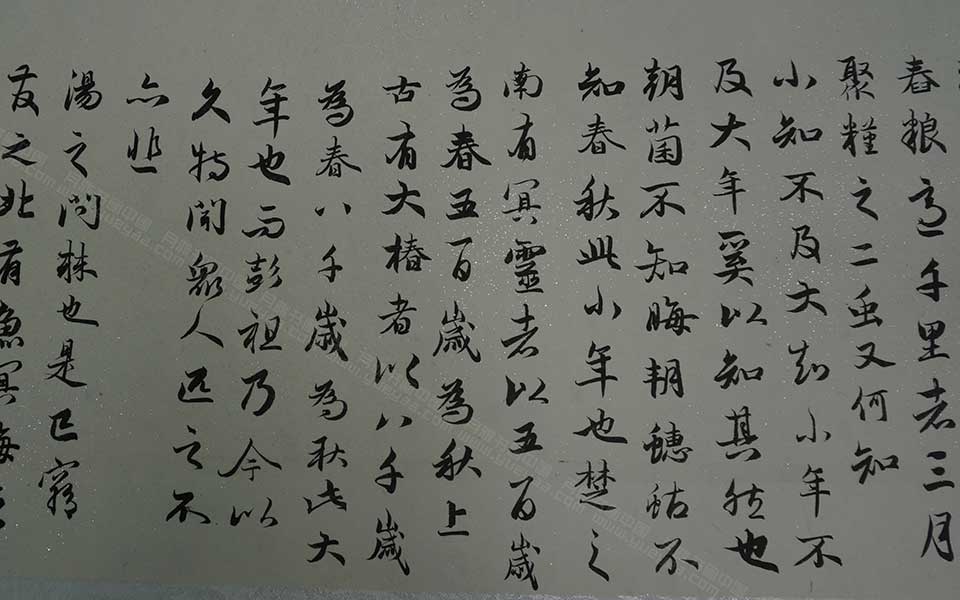 舂粮適千里者三月
聚糧之二虫又何知
小知不及大知小年不
及大年奚以知其然也
朝菌不知晦朔蟪蛄不
知春秋此小年也楚之
南有冥靈者以五百歲
為春五百歲為秋上
古有大椿者以八千歲
為春八千歲為秋此大
年也而彭祖乃今以
久特聞眾人匹之不
亦悲
湯之問棘也是已窮
之北有魚冥海